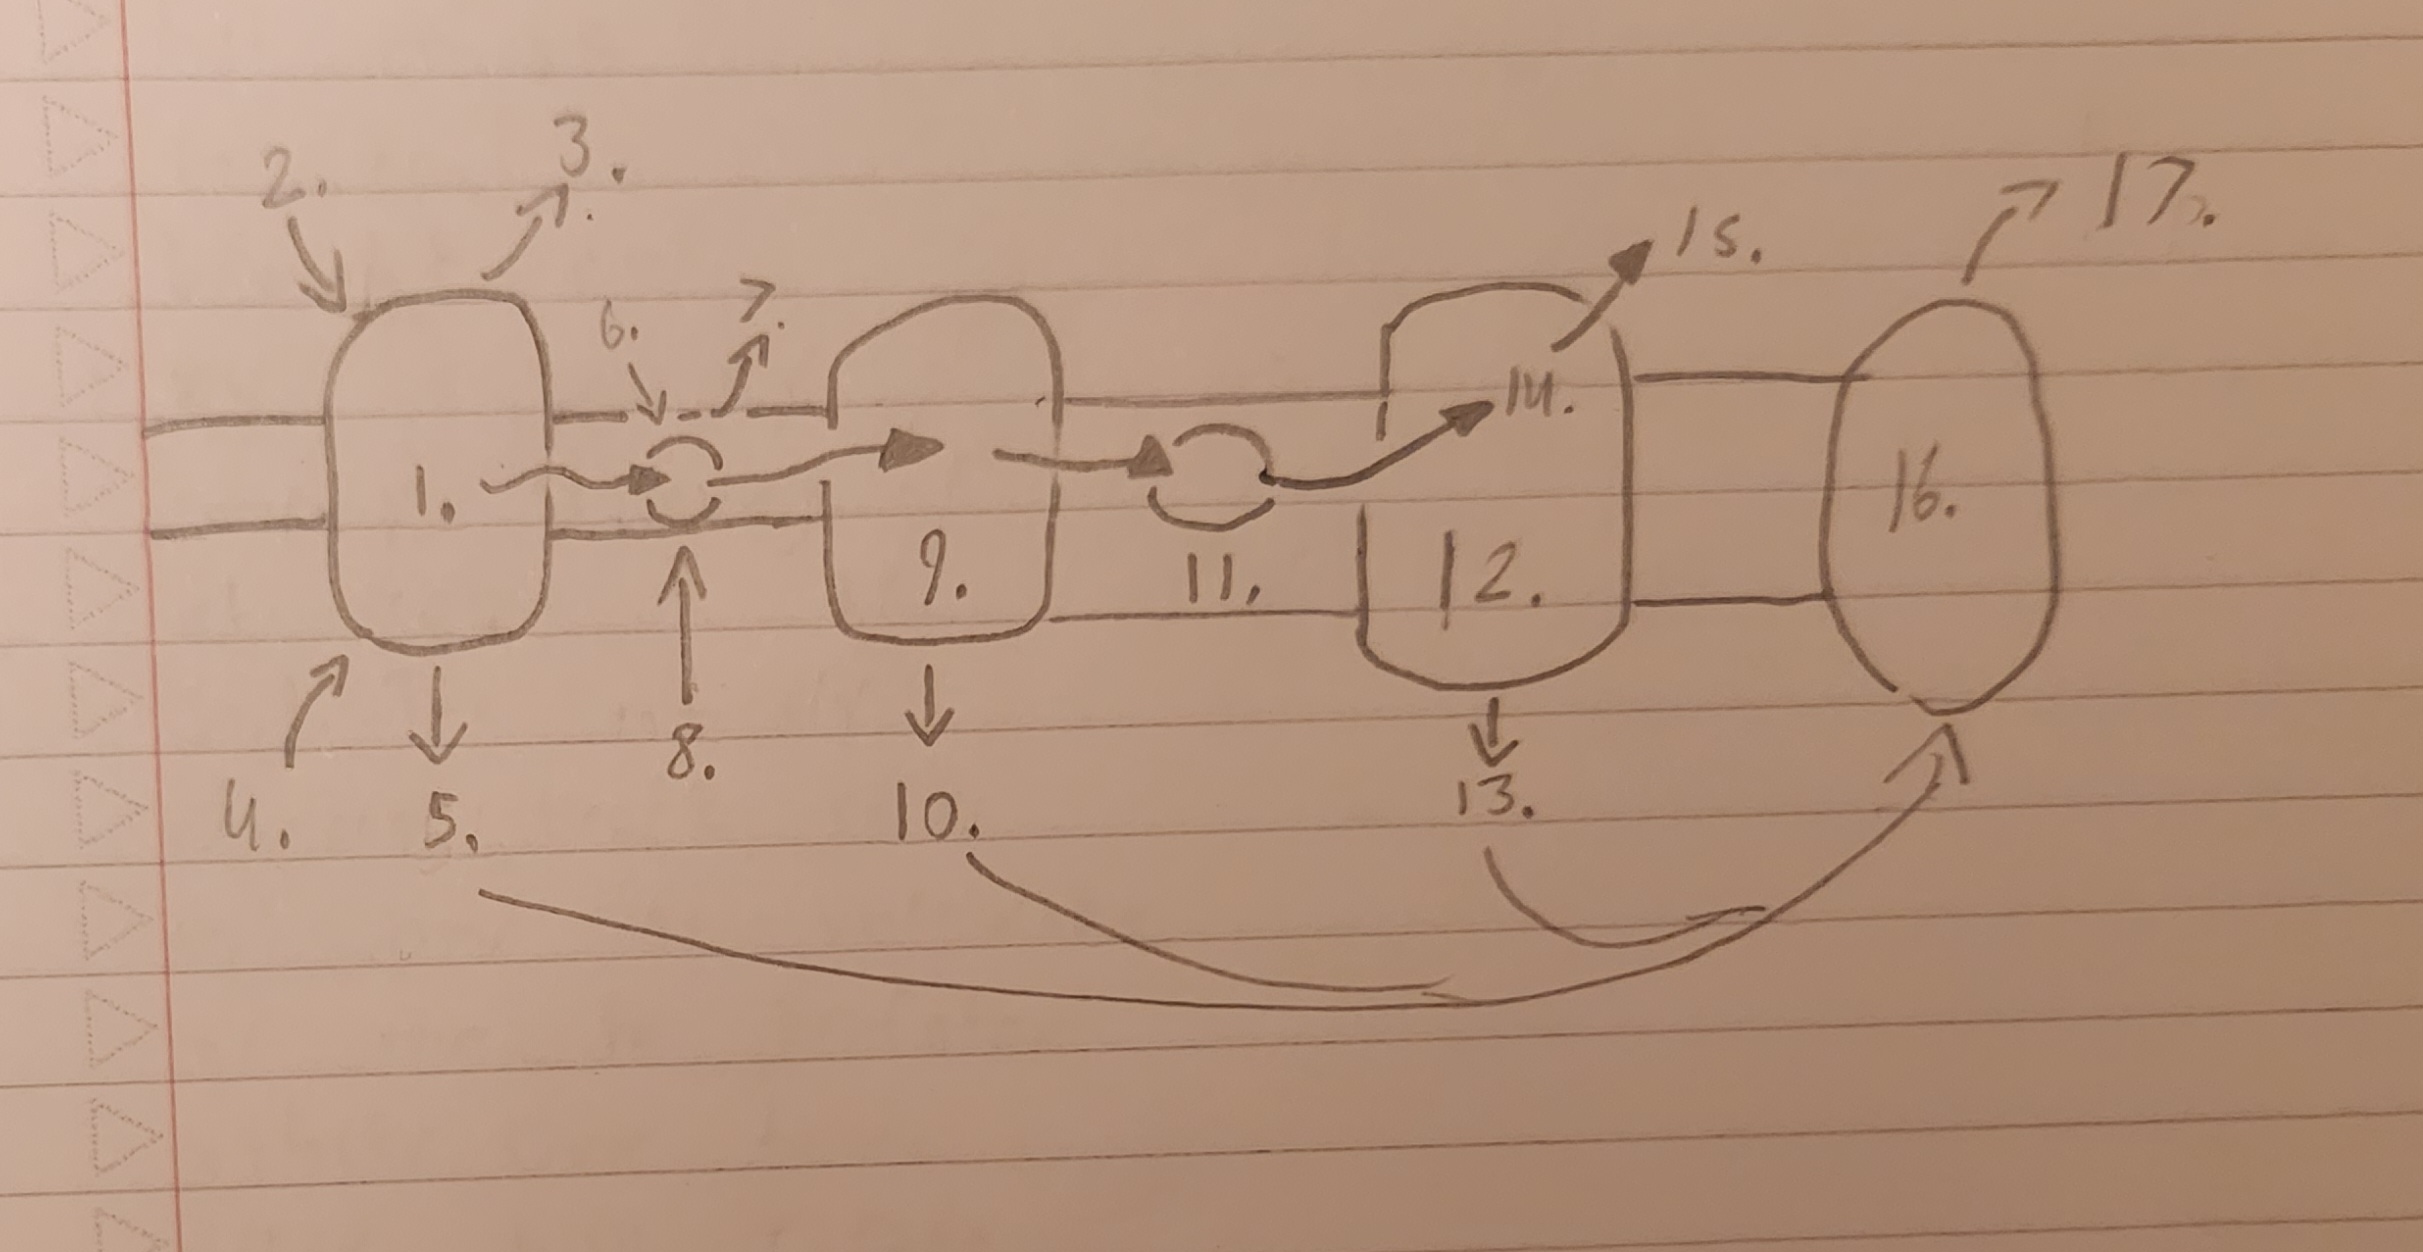 3.
2.
17.
15.
7.
6.
14.
1.
16.
9.
11.
12.
8.
13.
4.
5.
10.